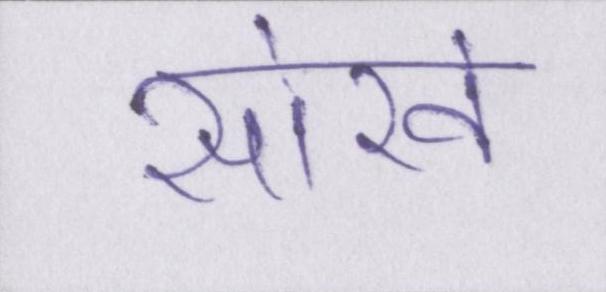 सांखं